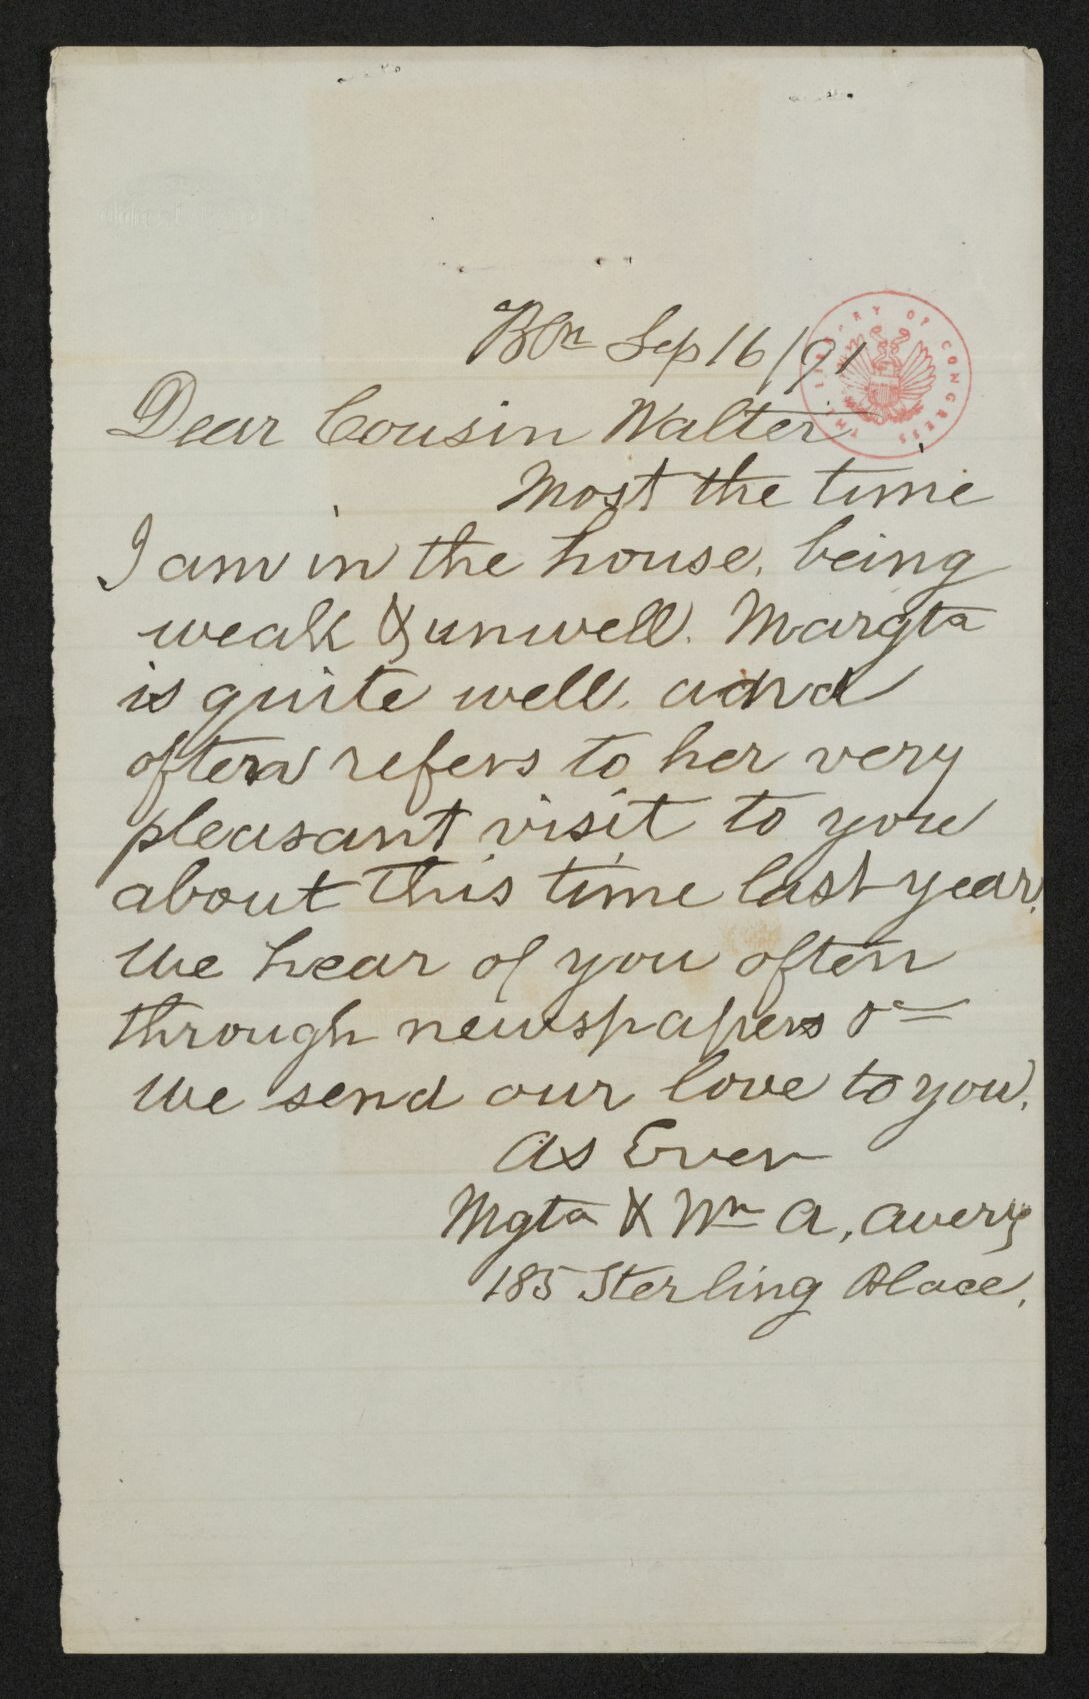 Bkn Sep 16/91
THE LIBRARY OF CONGRESS
Dear Cousin Walter,
Most the time
I am in the house, being
weak & unwell. Margta
is quite well, and
often refers to her very
pleasant visit to you
about this time last year.
We hear of you often
through newspapers &c
We send our love to you.
As Ever
Mgta & Wm A, Avery
185 Sterling Place.